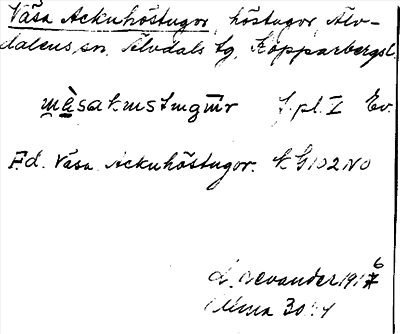 Väsa Ackuhöstugor, höstugor, Älv-
dalens sn, Älvdals tg, Kopparbergs l.
f. pl. I Ev.
F.d. Väsa Ackuhöstugor. K G102NO
L. Levander 1916
Elma 30:4